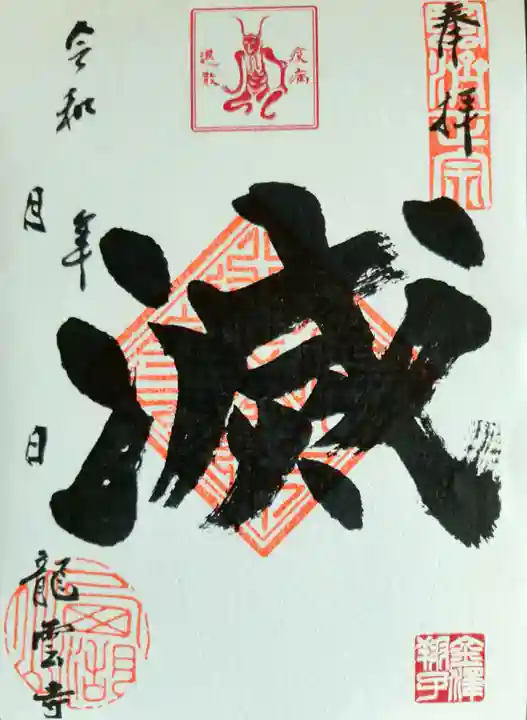 奉拝
疫病
退散
滅
令和 年
月 日
龍雲寺
金澤
翔子